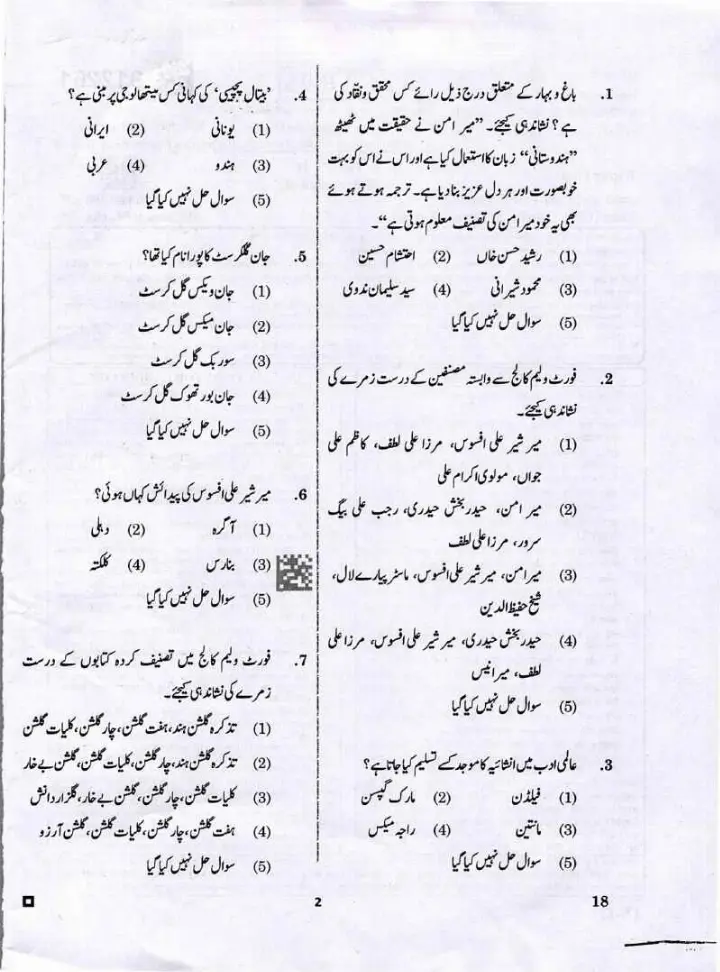 1. باغ و بہار کے متعلق درج ذیل رائے کس محقق و نقاد کی
ہے؟ نشاندہی کیجئے۔ ”میر امن نے حقیقت میں ٹھیٹھ
”ہندوستانی“ زبان کا استعمال کیا ہے اور اس نے اس کو بہت
خوبصورت اور ہر دل عزیز بنا دیا ہے۔ ترجمہ ہوتے ہوئے
بھی یہ خود میر امن کی تصنیف معلوم ہوتی ہے“۔
(1) رشید حسن خاں (2) احتشام حسین
(3) محمود شیرانی (4) سید سلیمان ندوی
(5) سوال حل نہیں کیا گیا
2. فورٹ ولیم کالج سے وابستہ مصنفین کے درست زمرے کی
نشاندہی کیجئے۔
(1) میر شیر علی افسوس، مرزا علی لطف، کاظم علی
جواں، مولوی اکرام علی
(2) میر امن، حیدر بخش حیدری، رجب علی بیگ
سرور، مرزا علی لطف
(3) میر امن، میر شیر علی افسوس، ماسٹر پیارے لال،
شیخ حفیظ الدین
(4) حیدر بخش حیدری، میر شیر علی افسوس، مرزا علی
لطف، میر انیس
(5) سوال حل نہیں کیا گیا
3. عالمی ادب میں انشائیہ کا موجد کسے تسلیم کیا جاتا ہے؟
(1) فیلڈن (2) مارک گپسن
(3) مانتین (4) راجہ میکس
(5) سوال حل نہیں کیا گیا
4. ’بیتال پچیسی‘ کی کہانی کس میتھالوجی پر مبنی ہے؟
(1) یونانی (2) ایرانی
(3) ہندو (4) عربی
(5) سوال حل نہیں کیا گیا
5. جان گلکرسٹ کا پورا نام کیا تھا؟
(1) جان ویکس گل کرسٹ
(2) جان میکس گل کرسٹ
(3) سور بک گل کرسٹ
(4) جان بور تھوک گل کرسٹ
(5) سوال حل نہیں کیا گیا
6. میر شیر علی افسوس کی پیدائش کہاں ہوئی؟
(1) آگرہ (2) دہلی
(3) بنارس (4) کلکتہ
(5) سوال حل نہیں کیا گیا
7. فورٹ ولیم کالج میں تصنیف کردہ کتابوں کے درست
زمرے کی نشاندہی کیجئے۔
(1) تذکرہ گلشن ہند، ہفت گلشن، چار گلشن، کلیات گلشن
(2) تذکرہ گلشن ہند، چار گلشن، کلیات گلشن، گلشن بے خار
(3) کلیات گلشن، چار گلشن، گلشن بے خار، گلزار دانش
(4) ہفت گلشن، چار گلشن، کلیات گلشن، گلشن آرزو
(5) سوال حل نہیں کیا گیا
2
18